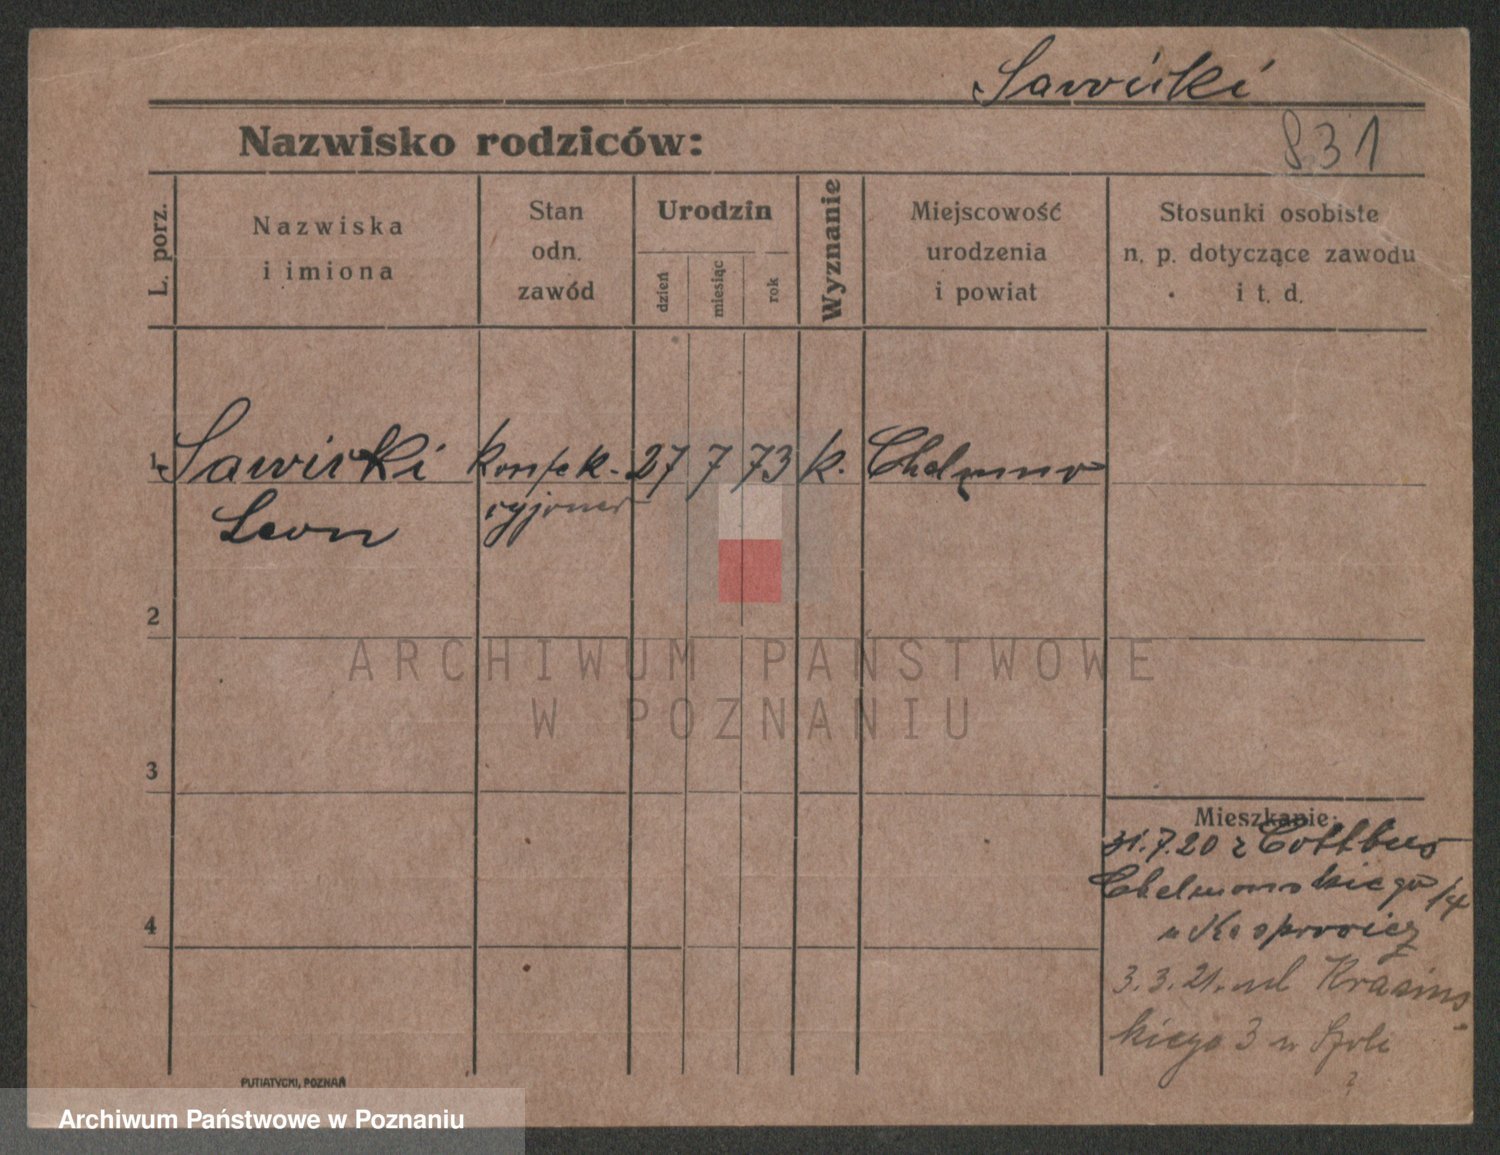 Sawicki
831
Nazwisko rodziców:
L. porz.
Nazwiska
i imiona
Stan
odn.
zawód
Urodzin
dzień
miesiąc
rok
Wyznanie
Miejscowość
urodzenia
i powiat
Stosunki osobiste
n. p. dotyczące zawodu
i t. d.
1 Sawicki konfek- 27 7 73 k. Chełmno
Leon cyjoner
2
3
4
Mieszkanie:
31.7.20 z Cottbus
Chelmonskiego /4
u Kasprowicz
3.3.21. ul Krasins
kiego 3 u
PUTIATYCKI, POZNAŃ
ARCHIWUM PAŃSTWOWE
W POZNANIU
Archiwum Państwowe w Poznaniu